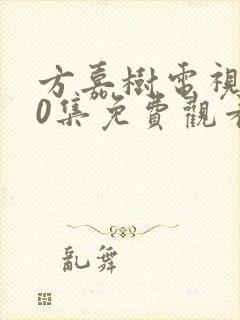 方嘉樹電視
0集免費觀看
亂舞